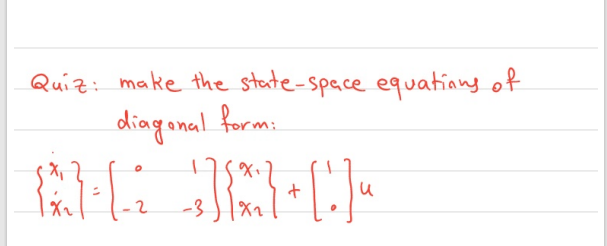 Quiz: make the state-space equations of
diagonal form:
{ẋ₁ ẋ₂} = [0 1 -2 -3] {x₁ x₂} + [1 0] u